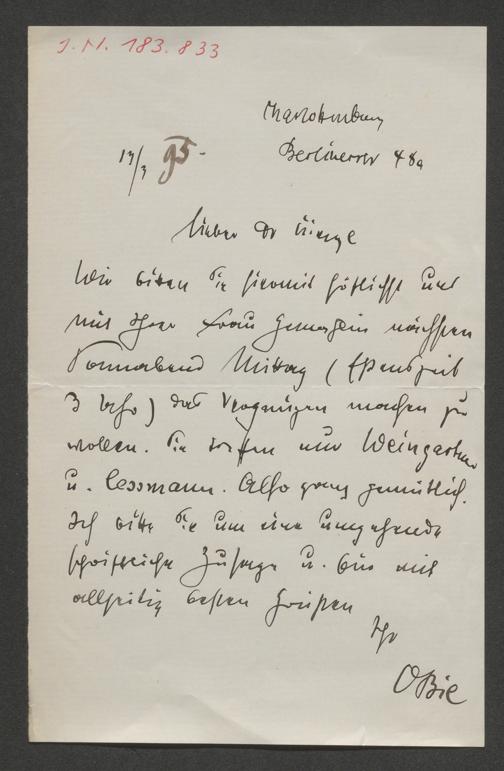 J.N. 183.833
Charlottenburg
Berlinerstr 48a
17/3 95.
Lieber Dr
Wir bitten Sie hiermit höflichst uns
mit Ihrer Frau Gemahlin nächsten
Sonnabend Mittag (Essenszeit
3 Uhr) das Vergnügen machen zu
wollen. Sie treffen nur Weingartner
u. Lessmann. Also ganz gemütlich.
Ich bitte Sie um eine umgehende
schriftliche Zusage u. bin mit
allseitig besten Grüßen
Ihr
OBie